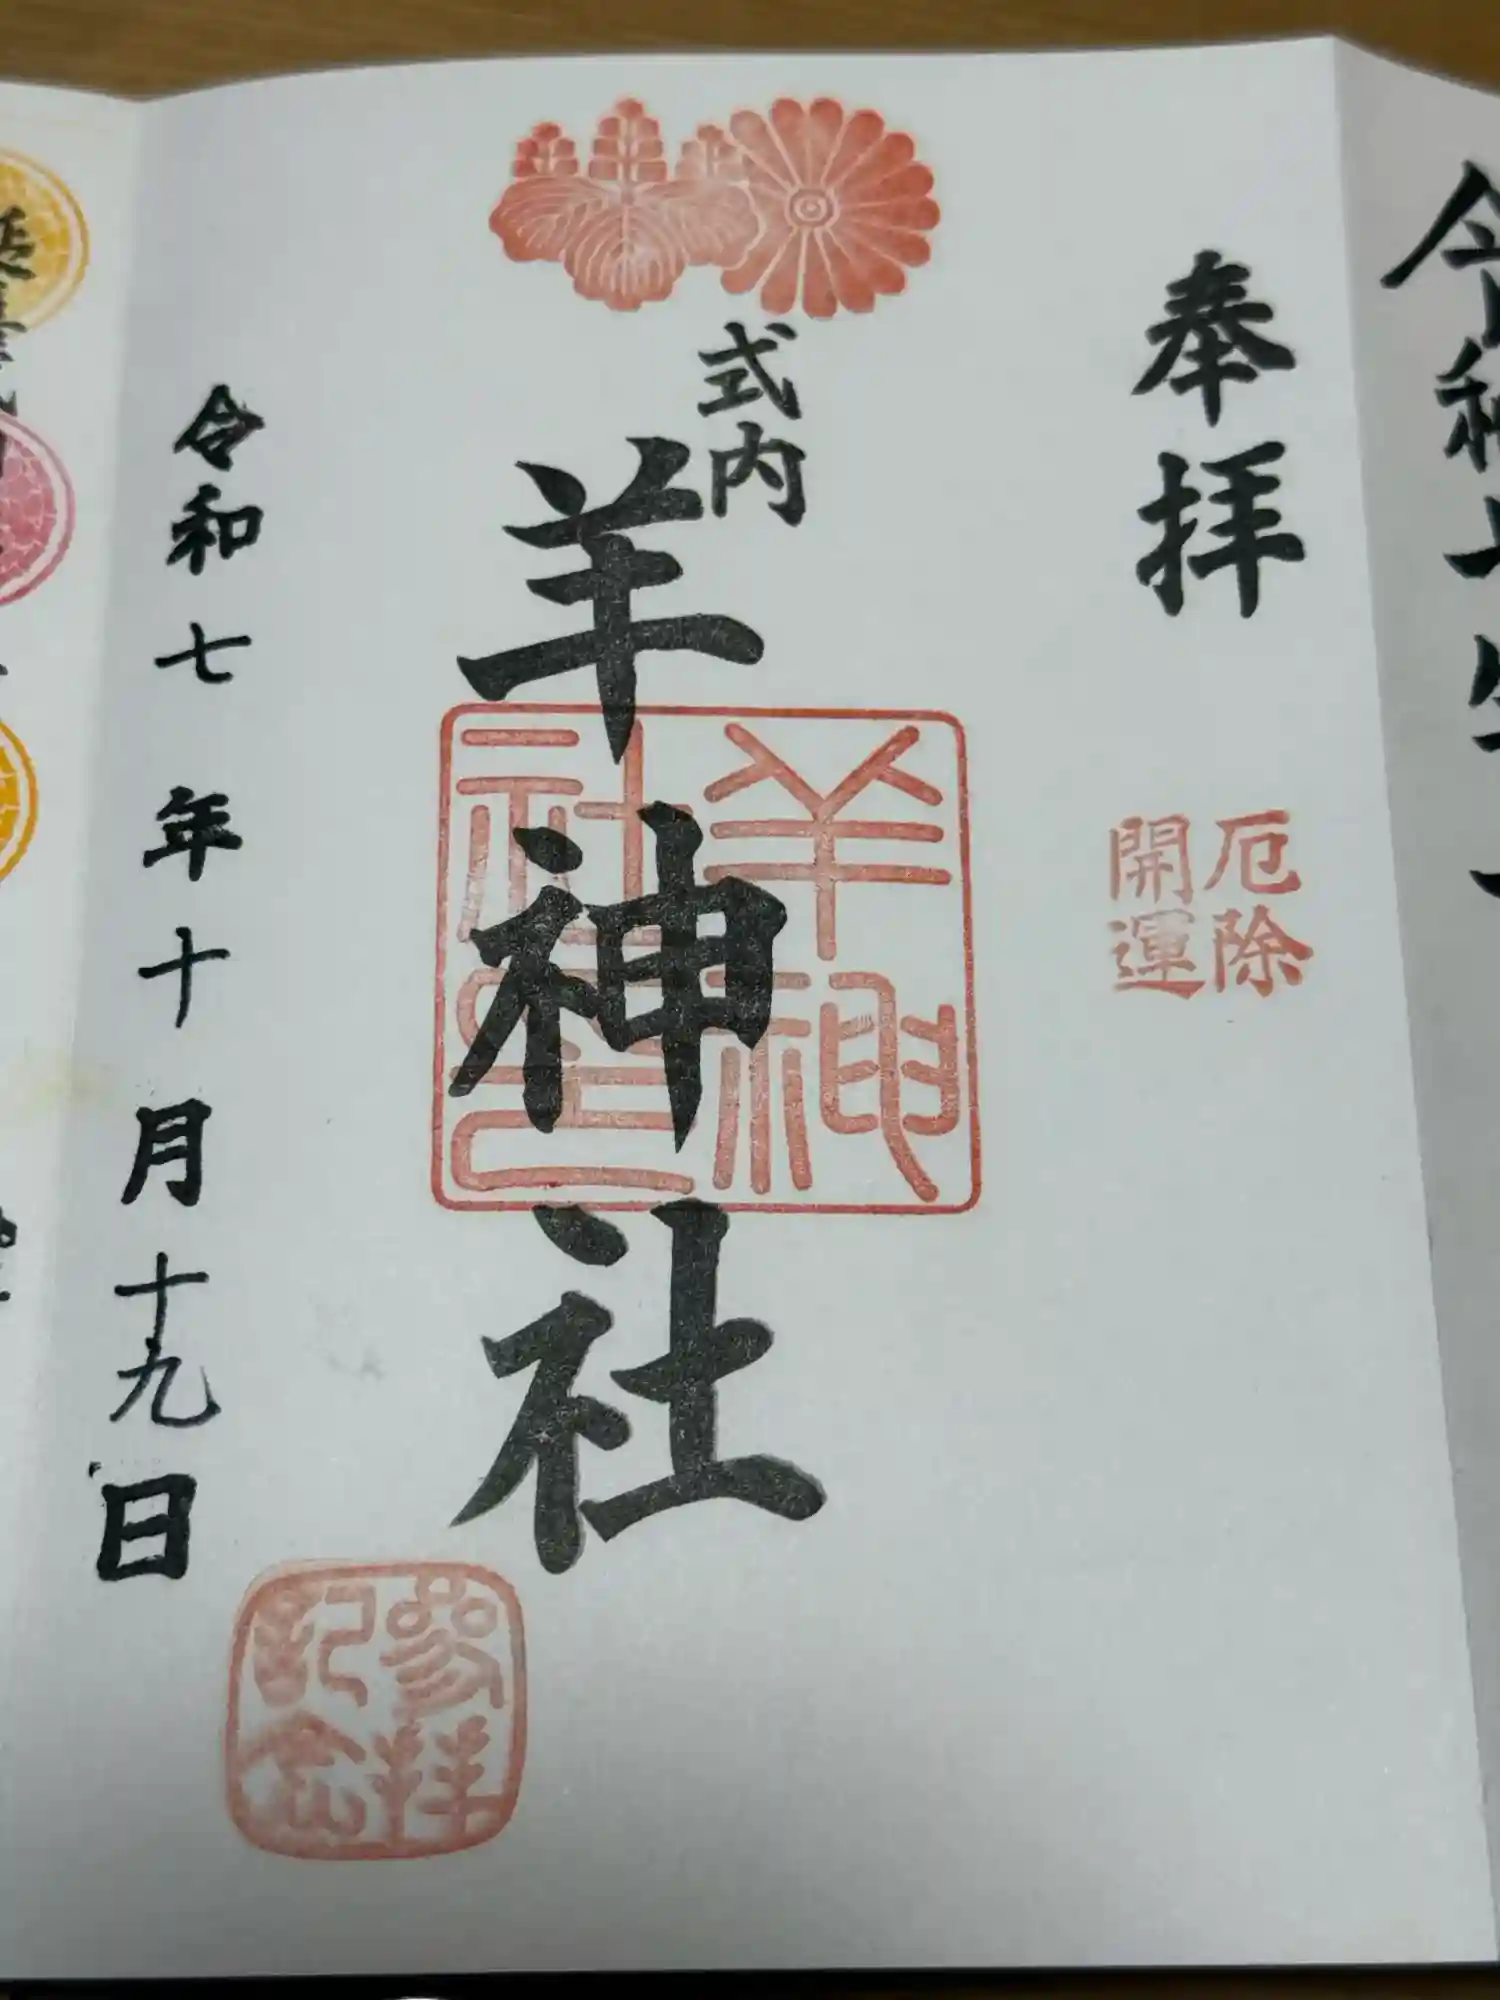 奉拝
厄除
開運
式内
羊神社
羊神
社之印
令和七年十月十九日
参拝
記念